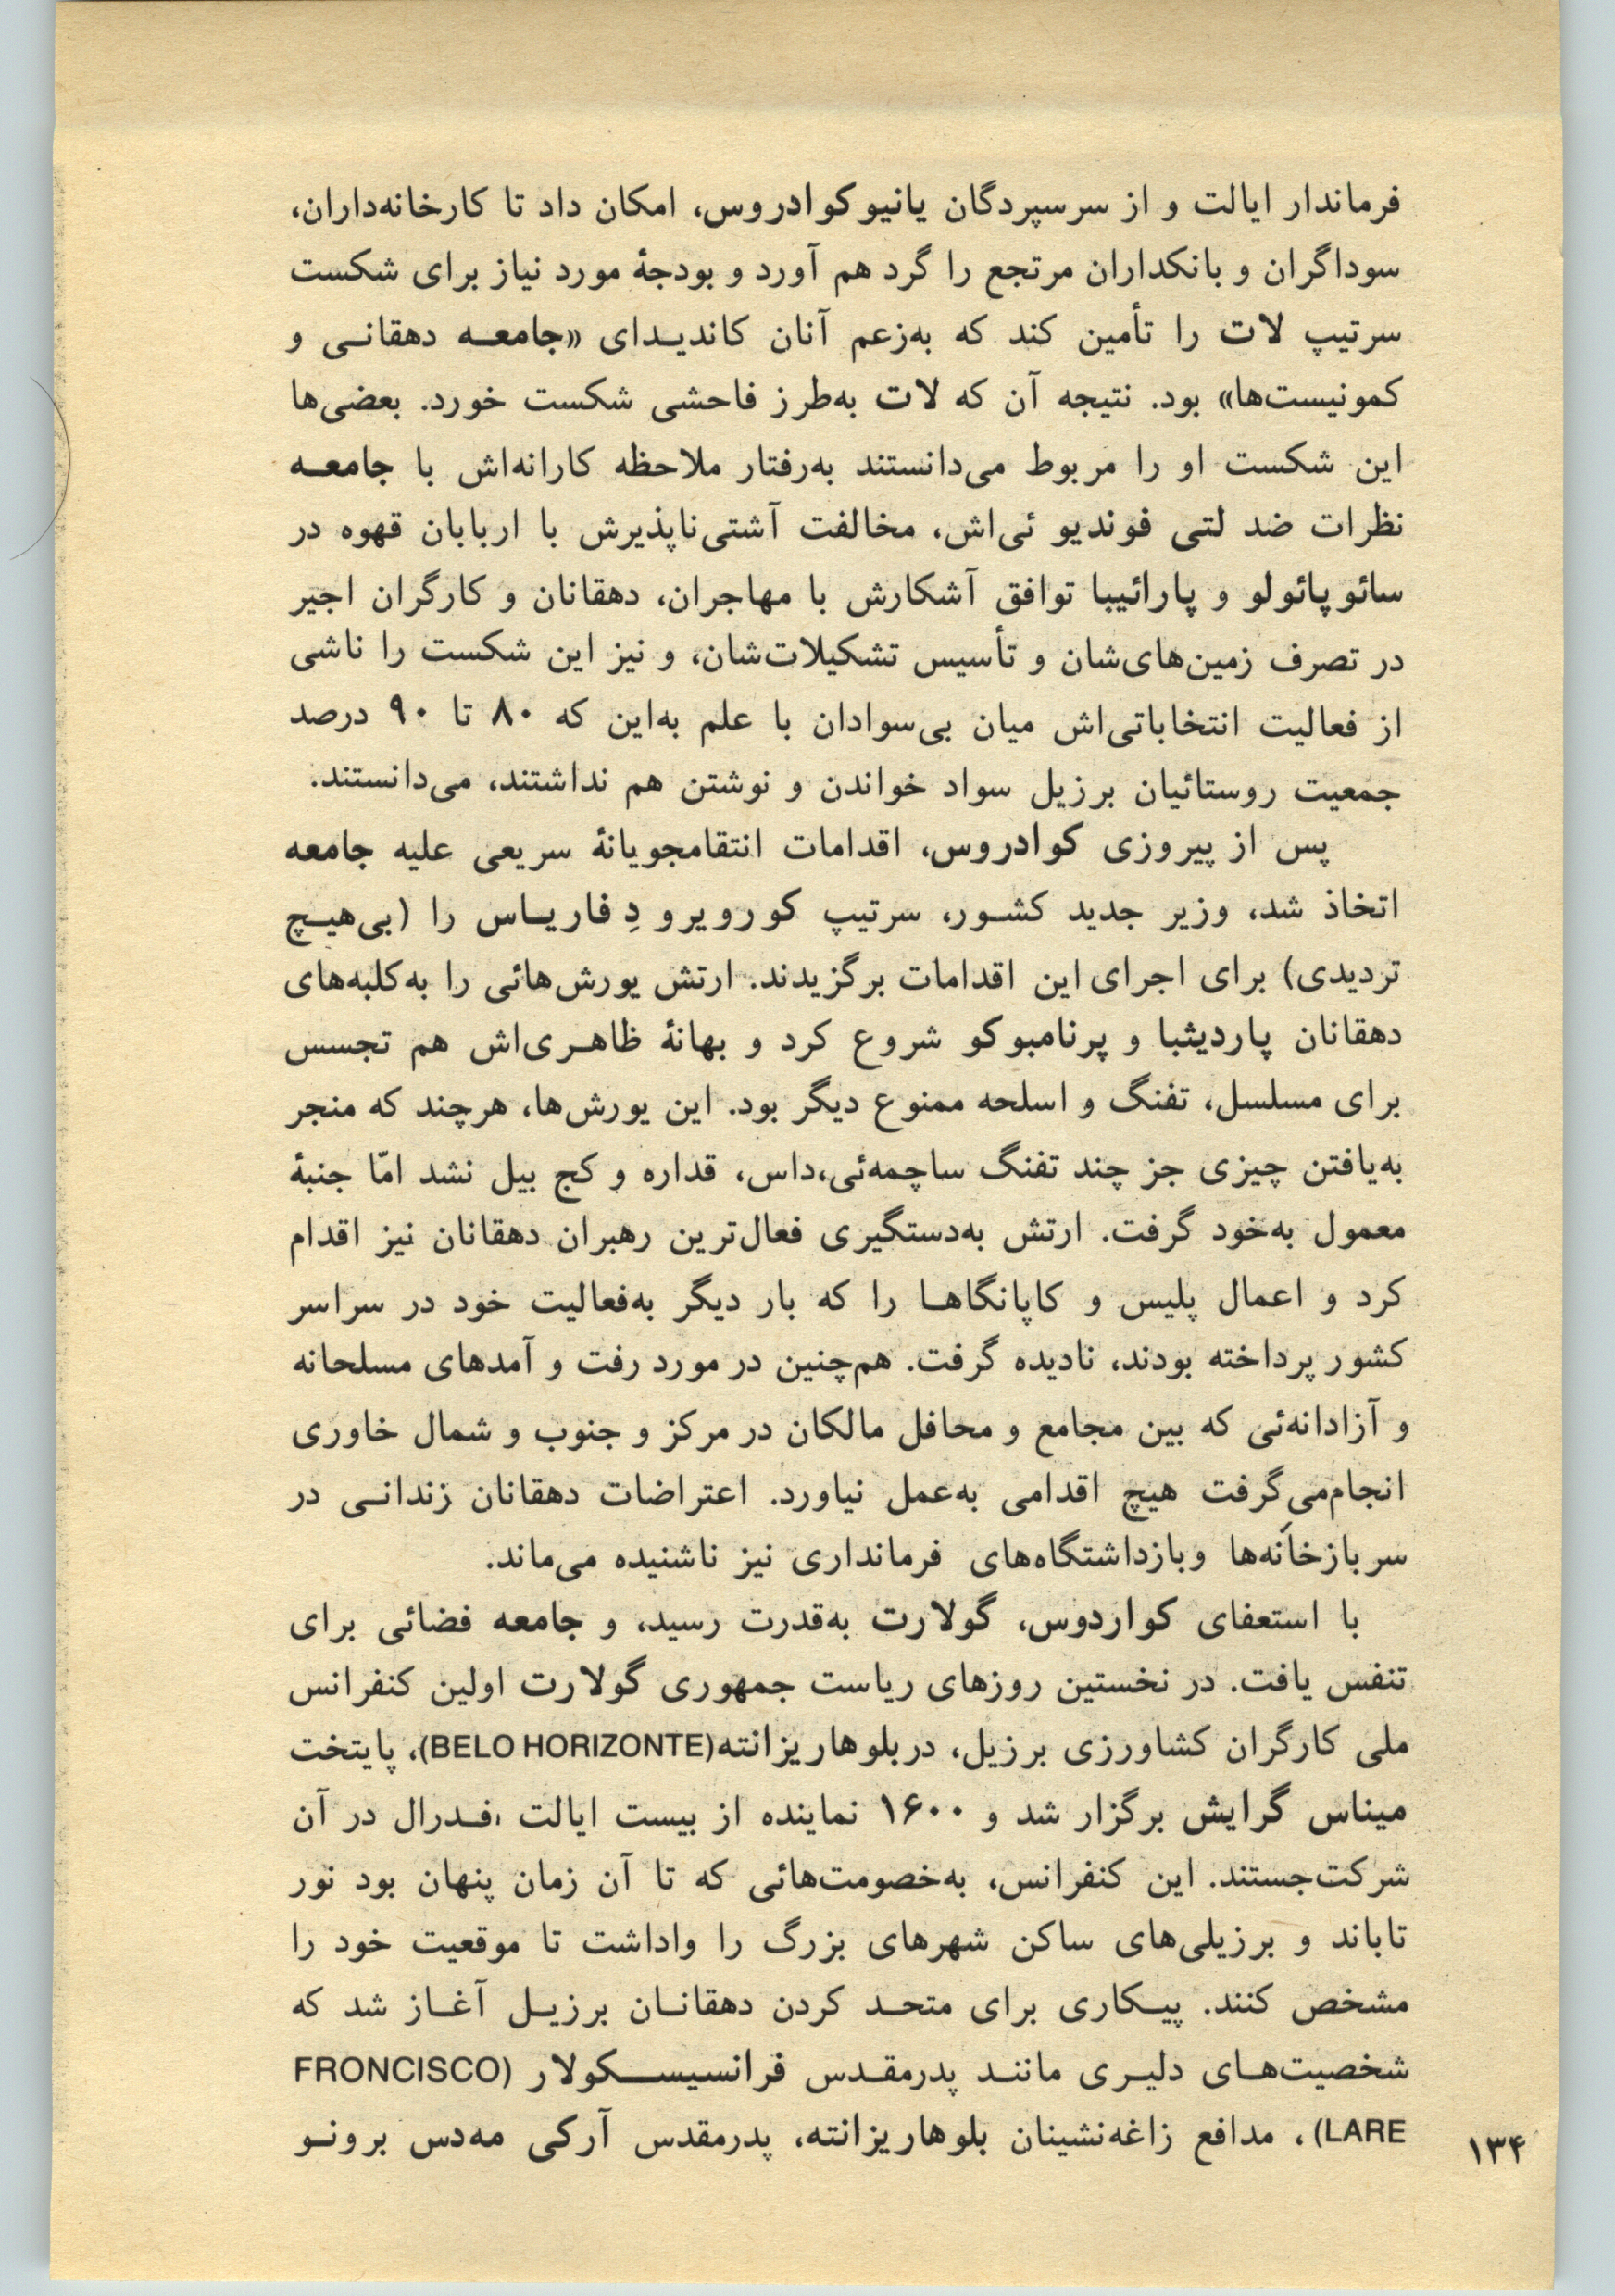 فرماندار ایالت و از سرسپردگان یانیو کوادروس، امکان داد تا کارخانه‌داران،
سوداگران و بانکداران مرتجع را گرد هم آورد و بودجهٔ مورد نیاز برای شکست
سرتیپ لات را تأمین کند که به‌زعم آنان کاندیدای «جامعه دهقانی و
کمونیست‌ها» بود. نتیجه آن که لات به‌طرز فاحشی شکست خورد. بعضی‌ها
این شکست او را مربوط می‌دانستند به‌رفتار ملاحظه کارانه‌اش با جامعه
نظرات ضد لتی فوندیو ئی‌اش، مخالفت آشتی‌ناپذیرش با اربابان قهوه در
سائوپائولو و پارائیبا توافق آشکارش با مهاجران، دهقانان و کارگران اجیر
در تصرف زمین‌های‌شان و تأسیس تشکیلات‌شان، و نیز این شکست را ناشی
از فعالیت انتخاباتی‌اش میان بی‌سوادان با علم به‌این که ۸۰ تا ۹۰ درصد
جمعیت روستائیان برزیل سواد خواندن و نوشتن هم نداشتند، می‌دانستند.
پس از پیروزی کوادروس، اقدامات انتقامجویانهٔ سریعی علیه جامعه
اتخاذ شد، وزیر جدید کشور، سرتیپ کورویرو دِ فاریاس را (بی‌هیچ
تردیدی) برای اجرای این اقدامات برگزیدند. ارتش یورش‌هائی را به‌کلبه‌های
دهقانان پاردیثبا و پرنامبوکو شروع کرد و بهانهٔ ظاهری‌اش هم تجسس
برای مسلسل، تفنگ و اسلحه ممنوع دیگر بود. این یورش‌ها، هرچند که منجر
به‌یافتن چیزی جز چند تفنگ ساچمه‌ئی،داس، قداره و کج بیل نشد امّا جنبهٔ
معمول به‌خود گرفت. ارتش به‌دستگیری فعال‌ترین رهبران دهقانان نیز اقدام
کرد و اعمال پلیس و کاپانگاها را که بار دیگر به‌فعالیت خود در سراسر
کشور پرداخته بودند، نادیده گرفت. هم‌چنین در مورد رفت و آمدهای مسلحانه
و آزادانه‌ئی که بین مجامع و محافل مالکان در مرکز و جنوب و شمال خاوری
انجام‌می‌گرفت هیچ اقدامی به‌عمل نیاورد. اعتراضات دهقانان زندانی در
سربازخانه‌ها وبازداشتگاه‌های فرمانداری نیز ناشنیده می‌ماند.
با استعفای کواردوس، گولارت به‌قدرت رسید، و جامعه فضائی برای
تنفس یافت. در نخستین روزهای ریاست جمهوری گولارت اولین کنفرانس
ملی کارگران کشاورزی برزیل، دربلوهاریزانته(BELO HORIZONTE)، پایتخت
میناس گرایش برگزار شد و ۱۶۰۰ نماینده از بیست ایالت فدرال در آن
شرکت‌جستند. این کنفرانس، به‌خصومت‌هائی که تا آن زمان پنهان بود نور
تاباند و برزیلی‌های ساکن شهرهای بزرگ را واداشت تا موقعیت خود را
مشخص کنند. پیکاری برای متحد کردن دهقانان برزیل آغاز شد که
شخصیت‌های دلیری مانند پدرمقدس فرانسیسکولار (FRONCISCO
LARE)، مدافع زاغه‌نشینان بلوهاریزانته، پدرمقدس آرکی مه‌دس برونو
۱۳۴